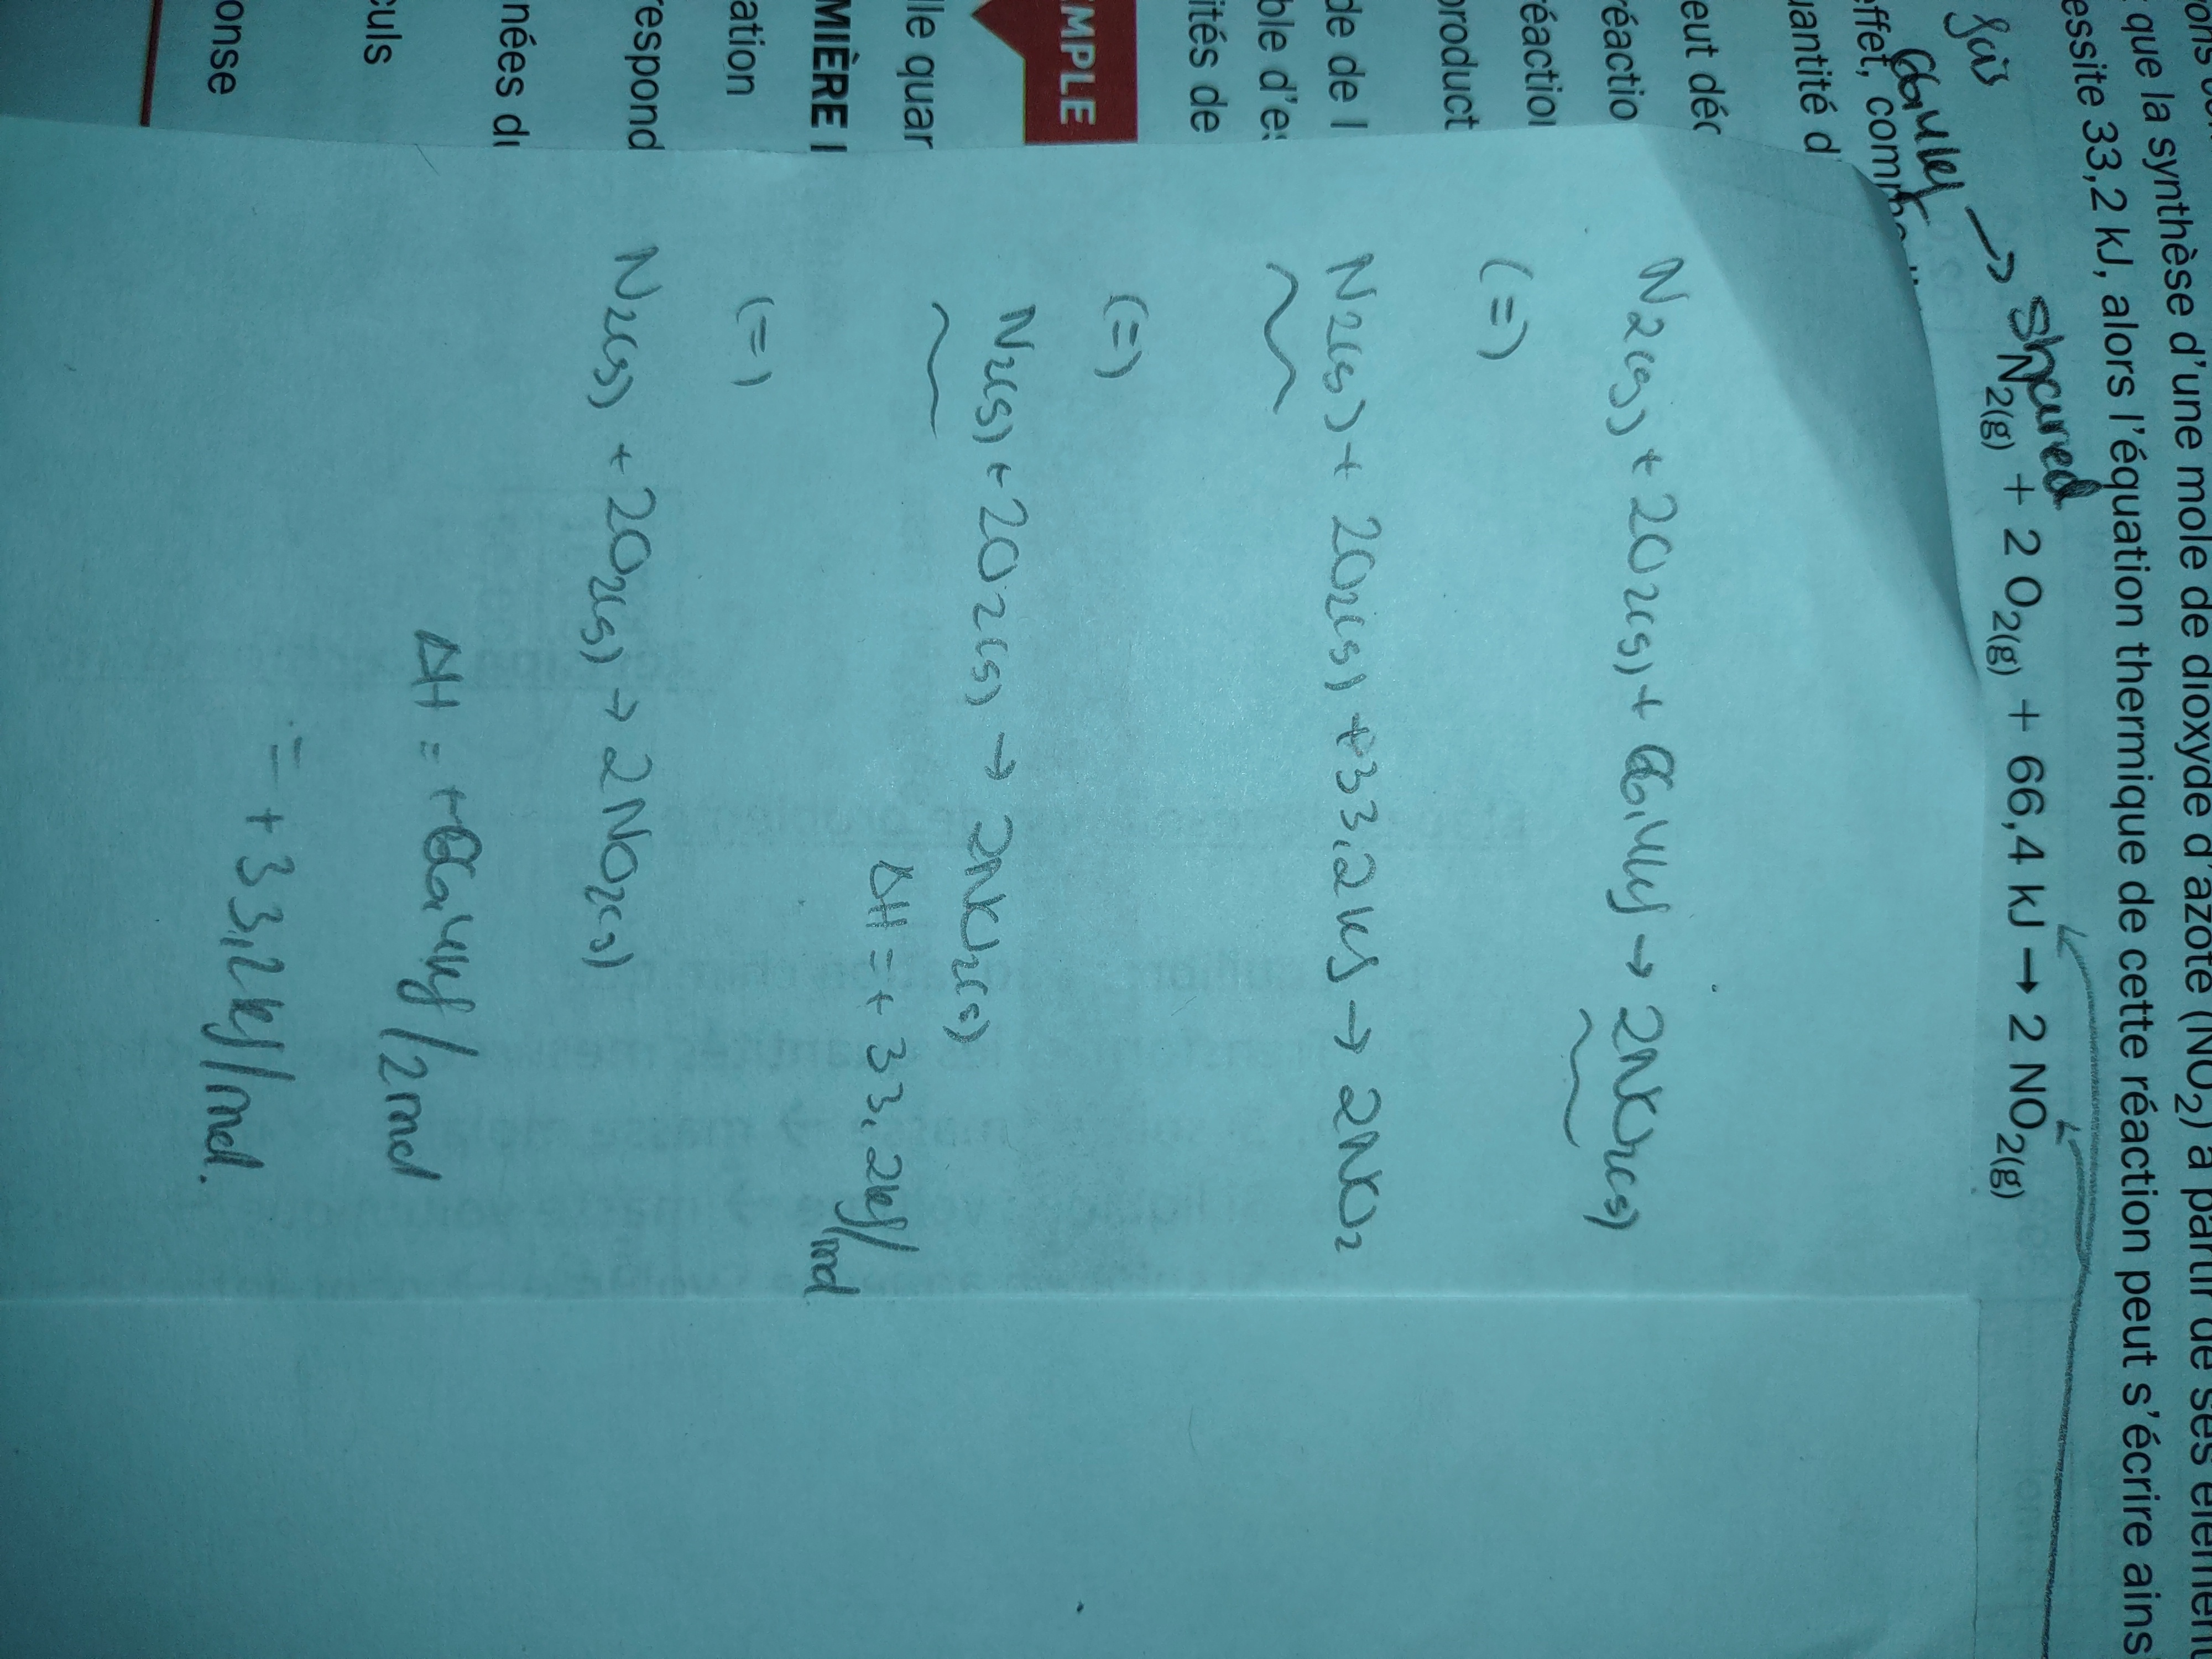 que la synthèse d'une mole de dioxyde d'azote (NO2) à partir de ses élément
essite 33,2 kJ, alors l'équation thermique de cette réaction peut s'écrire ains
shared
N2(g) + 2 O2(g) + 66,4 kJ → 2 NO2(g)
effet, comm
uantité d'
eut déc
réactio
réaction
product
de de l
ble d'e
ités de
MPLE
lle quar
MIÈRE
ation
respond
nées d
culs
onse
N2(g) + 2O2(g) + 66,4kJ → 2NO2(g)
(=)
N2(g) + 2O2(g) + 33,2kJ → 2NO2
(=)
N2(g) + 2O2(g) → 2NO2(g)
ΔH = + 33,2kJ/mol
(=)
N2(g) + 2O2(g) → 2NO2(g)
ΔH = +66,4kJ/2mol
= +33,2kJ/mol.